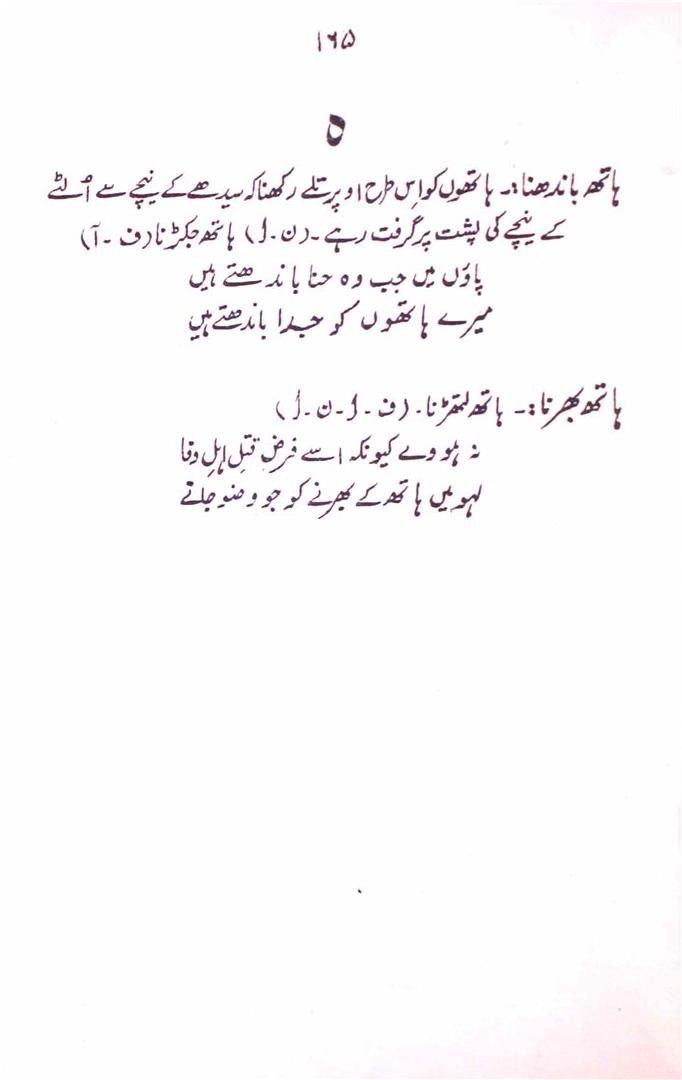 ۱۶۵
ہ
ہاتھ باندھنا:۔ ہاتھوں کو اِس طرح اوپر تلے رکھنا کہ سیدھے کے نیچے سے اُلٹے
کے نیچے کی پشت پر گرفت رہے۔ (ن۔ل) ہاتھ جکڑنا (ف۔آ)
پاؤں میں جب وہ حنا باندھتے ہیں
میرے ہاتھوں کو جدا باندھتے ہیں
ہاتھ بھرنا:۔ ہاتھ لتھڑنا۔ (ف۔ل۔ن۔ل)
نہ ہووے کیونکہ اسے فرضِ قتلِ اہلِ وفا
لہو میں ہاتھ کے بھرنے کو جو وضو جانے